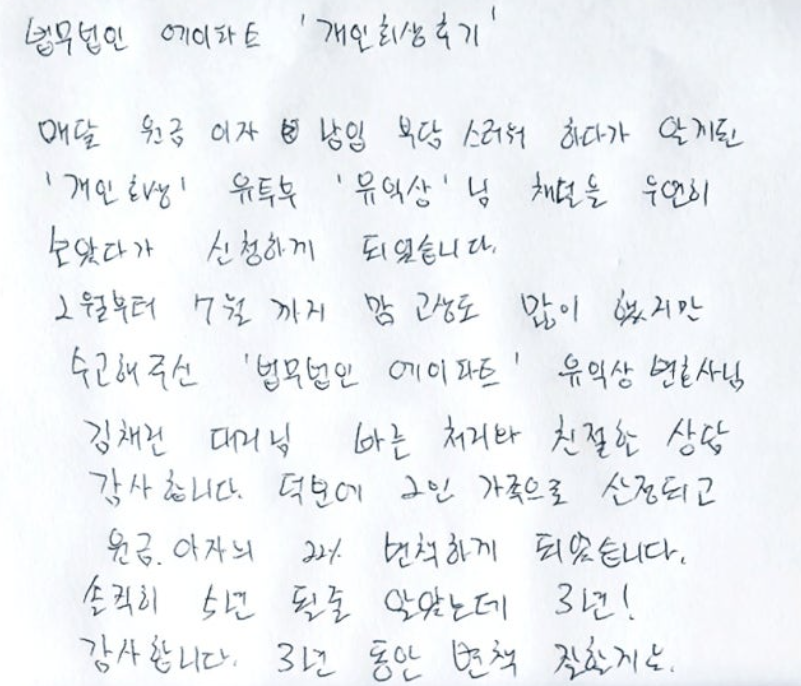 법무법인 에이파트 '개인회생후기'
매달 원금 이자 납입 부담 스러워 하다가 알게된
'개인회생' 유투부 '유익상'님 채널을 우연히
보았다가 신청하게 되었습니다.
2월부터 7월 까지 맘 고생도 많이 했지만
수고해주신 '법무법인 에이파트' 유익상 변호사님
김채린 대리님 빠른 처리와 친절한 상담
감사합니다. 덕분에 2인 가족으로 산정되고
원금.이자의 22% 변책하게 되었습니다.
솔직히 5년 될줄 알았는데 3년!
감사합니다. 3년 동안 변책 잘할게요.